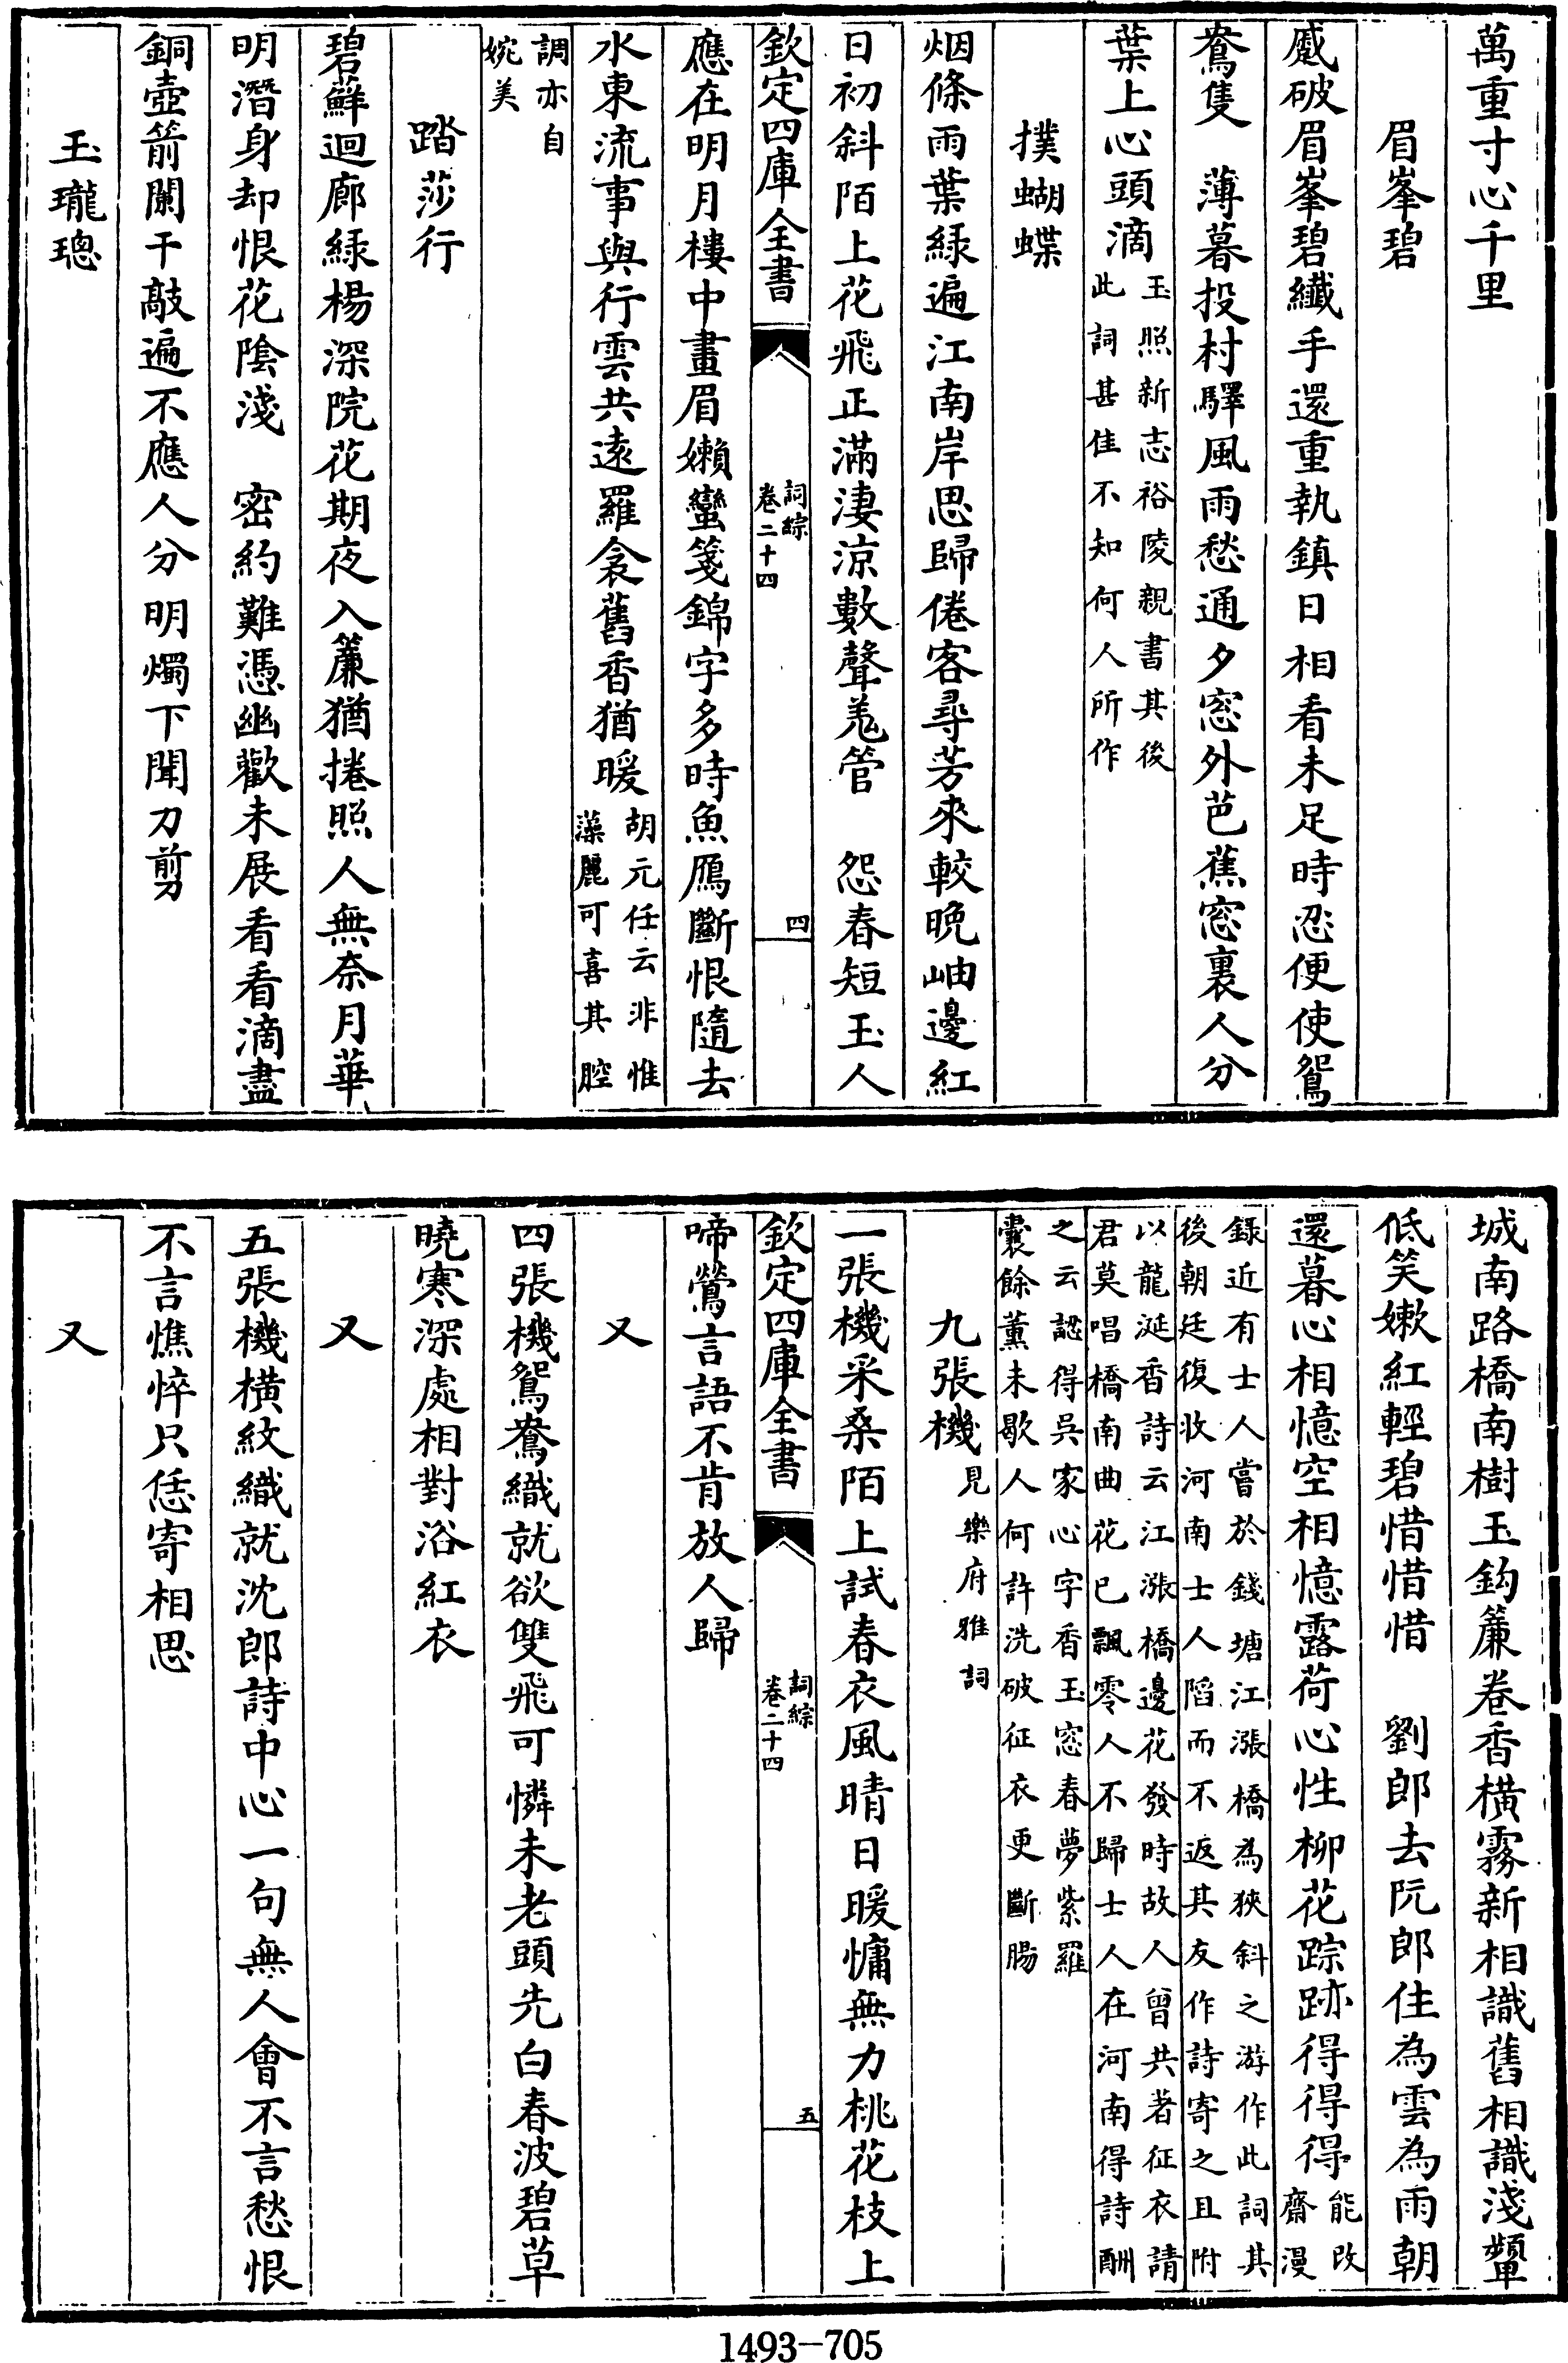 萬重寸心千里
眉峯碧
蹙破眉峯碧纖手還重執鎮日相看未足時忍便使鴛
鴦隻　薄暮投村驛風雨愁通夕窓外芭蕉窓裏人分
葉上心頭滴玉照新志裕陵親書其後
此詞甚佳不知何人所作
撲蝴蝶
烟條雨葉綠遍江南岸思歸倦客尋芳來較晚岫邊紅
日初斜陌上花飛正滿淒涼數聲羗管　怨春短玉人
欽定四庫全書
詞綜
卷二十四
四
應在明月樓中畫眉嬾蠻箋錦字多時魚鴈斷恨隨去
水東流事與行雲共遠羅衾舊香猶暖胡元任云非惟
藻麗可喜其腔
調亦自
婉美
踏莎行
碧蘚迴廊綠楊深院花期夜入簾猶捲照人無奈月華
明潛身却恨花陰淺　密約難憑幽歡未展看看滴盡
銅壺箭闌干敲遍不應人分明燭下聞刀剪
玉瓏璁
城南路橋南樹玉鈎簾卷香橫霧新相識舊相識淺顰
低笑嫰紅輕碧惜惜惜　劉郎去阮郎住為雲為雨朝
還暮心相憶空相憶露荷心性柳花踪跡得得得能改
齋漫
錄近有士人嘗於錢塘江漲橋為狹斜之游作此詞其
後朝廷復收河南士人陷而不返其友作詩寄之且附
以龍涎香詩云江漲橋邊花發時故人曾共著征衣請
君莫唱橋南曲花已飄零人不歸士人在河南得詩酬
之云認得吳家心字香玉窓春夢紫羅
囊餘薰未歇人何許洗破征衣更斷腸
九張機見樂府雅詞
一張機采桑陌上試春衣風晴日暖慵無力桃花枝上
欽定四庫全書
詞綜
卷二十四
五
啼鶯言語不肯放人歸
又
四張機鴛鴦織就欲雙飛可憐未老頭先白春波碧草
曉寒深處相對浴紅衣
又
五張機橫紋織就沈郎詩中心一句無人會不言愁恨
不言憔悴只恁寄相思
又
1493-705